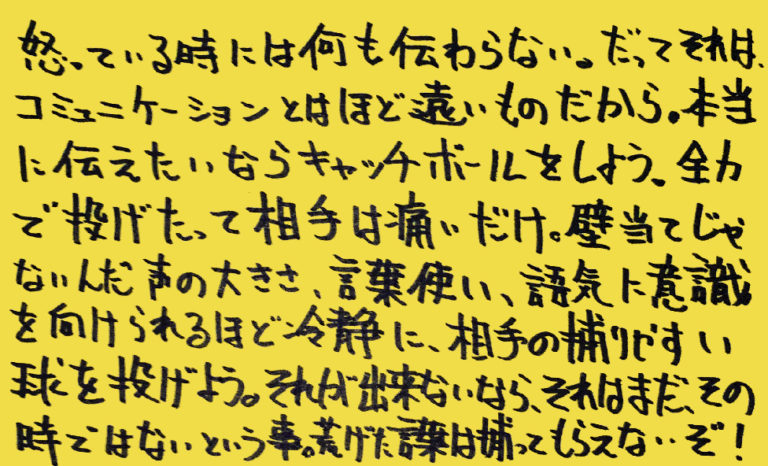 怒っている時には何も伝わらない。だってそれは、
コミュニケーションとはほど遠いものだから。本当
に伝えたいならキャッチボールをしよう。全力
で投げたって相手は痛いだけ。壁当てじゃ
ないんだ声の大きさ、言葉使い、語気に意識
を向けられるほど冷静に、相手の捕りやすい
球を投げよう。それが出来ないなら、それはまだ、その
時ではないという事。荒げた言葉は捕ってもらえないぞ!